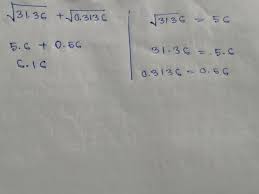 √31.36 + √0.3136
5.6 + 0.56
6.16
√3136 = 56
31.36 = 5.6
0.3136 = 0.56